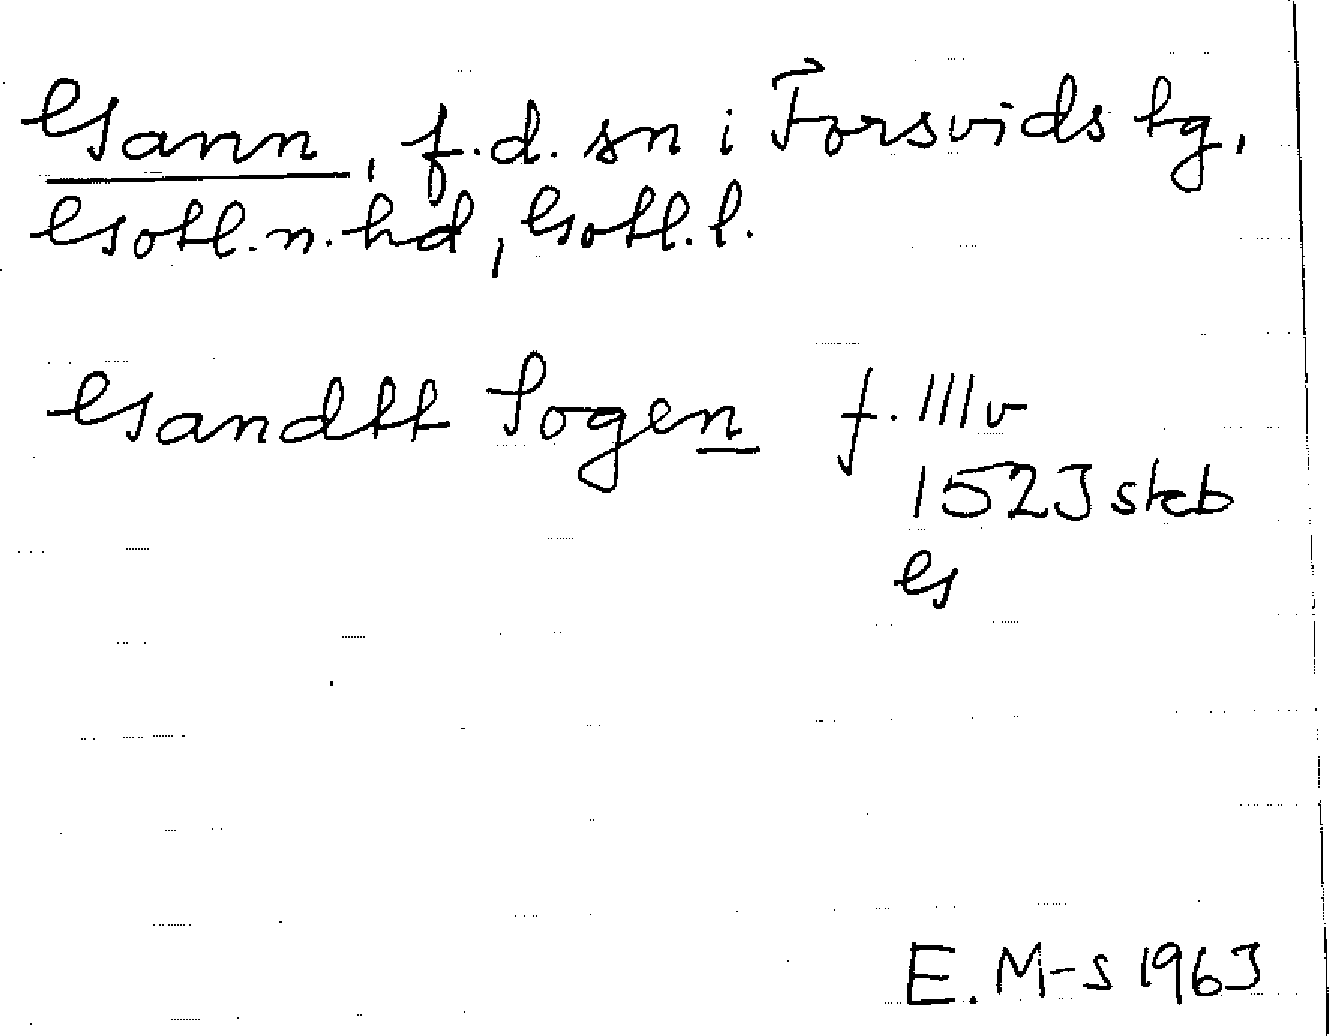 Gann, f.d. sn i Forsvids tg,
Gotl.n.hd, Gotl.l.
Gandtt Sogen f. IIIv
1523 skb
G
E. M-s 1963